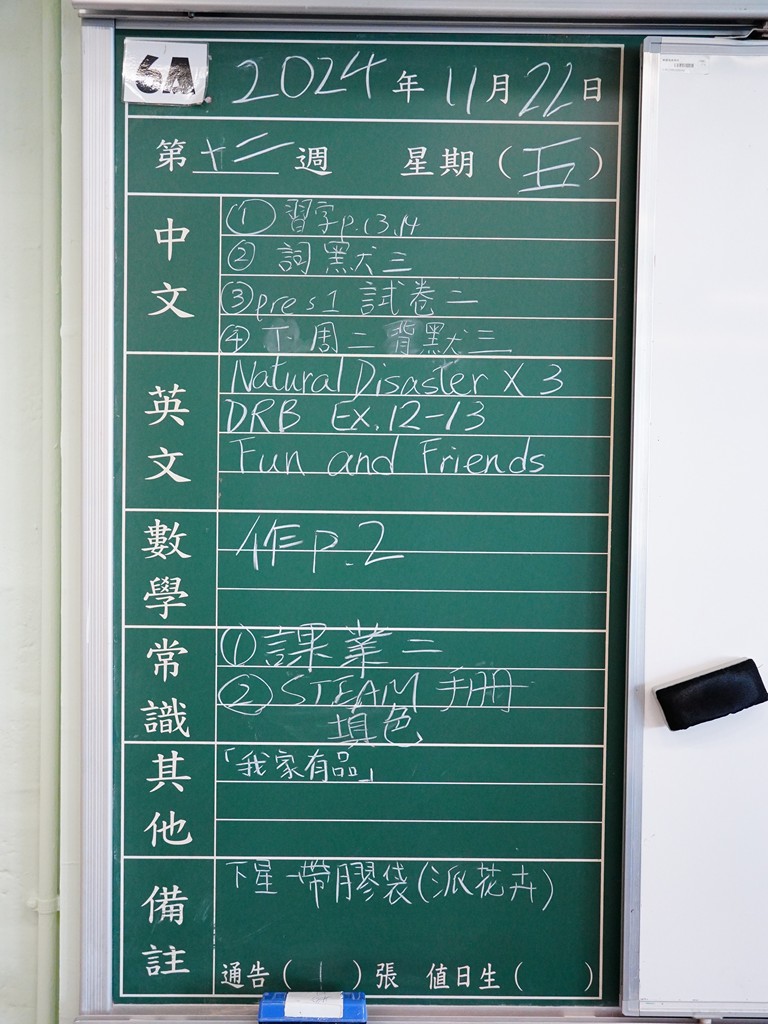 6A
2024年11月22日
第十二週 星期(五)
中文
① 習字p.13,14
② 詞默三
③pres1 試卷二
④下周二背默三
英文
Natural Disaster X 3
DRB Ex.12-13
Fun and Friends
數學
作p.2
常識
①課業二
②STEAM手冊
填色
其他
「我家有品」
備註
下星一帶膠袋(派花卉)
通告(1)張 值日生( )